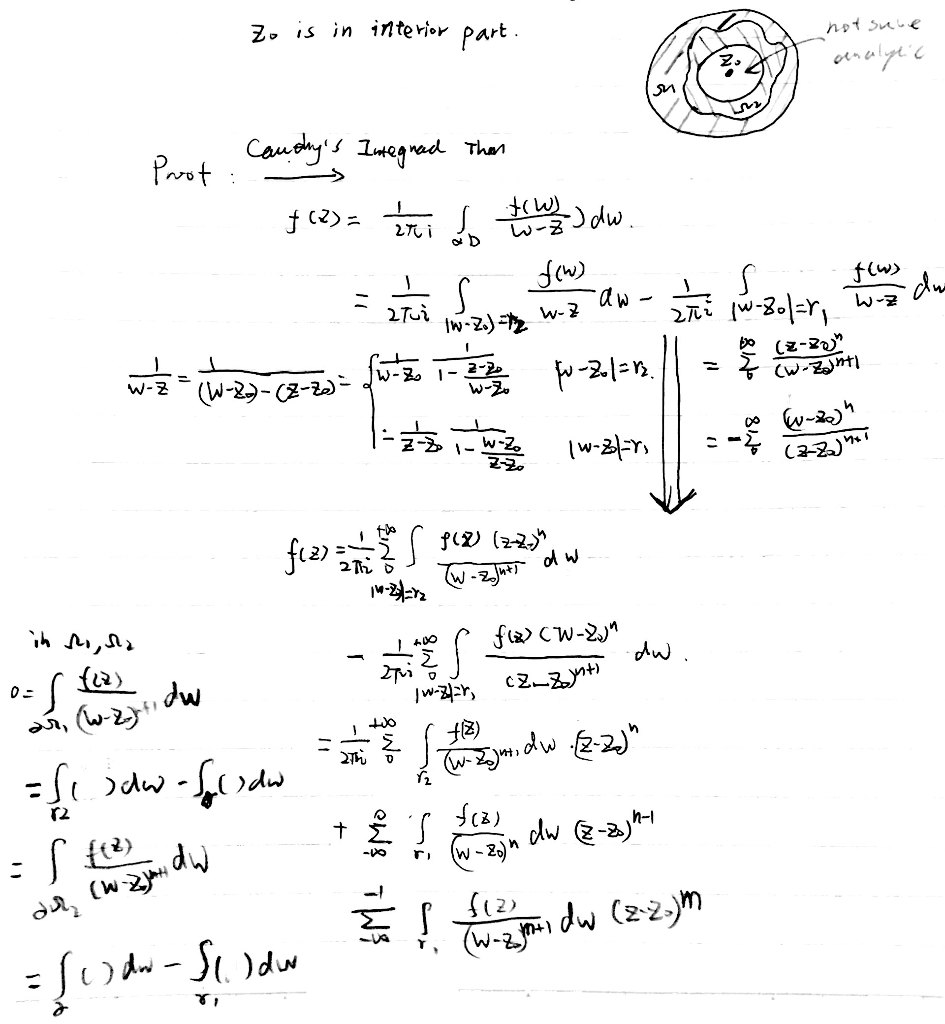 Z₀ is in interior part.
not sure
analytic
Z₀
Ω₁
Ω₂
Proof : Cauchy's Integral Thm ⟶
f(z) = 1/(2πi) ∫_{∂D} f(w)/(w-z) ) dw.
= 1/(2πi) ∫_{|w-z₀|=r₂} f(w)/(w-z) dw - 1/(2πi) ∫_{|w-z₀|=r₁} f(w)/(w-z) dw
1/(w-z) = 1/((w-z₀)-(z-z₀)) = { 1/(w-z₀) 1/(1-(z-z₀)/(w-z₀)) |w-z₀|=r₂. = Σ_0^∞ (z-z₀)ⁿ/(w-z₀)ⁿ⁺¹
-1/(z-z₀) 1/(1-(w-z₀)/(z-z₀)) |w-z₀|=r₁ = -Σ_0^∞ (w-z₀)ⁿ/(z-z₀)ⁿ⁺¹
f(z) = 1/(2πi) Σ_0^{+∞} ∫_{|w-z₀|=r₂} f(z) (z-z₀)ⁿ/(w-z₀)ⁿ⁺¹ dw
- 1/(2πi) Σ_0^{+∞} ∫_{|w-z|=r₁} f(z) (w-z₀)ⁿ/(z-z₀)ⁿ⁺¹ dw.
= 1/(2πi) Σ_0^{+∞} ∫_{r₂} f(z)/(w-z₀)ⁿ⁺¹ dw · (z-z₀)ⁿ
+ Σ_{-∞}^0 ∫_{r₁} f(z)/(w-z₀)ⁿ dw (z-z₀)ⁿ⁻¹
Σ_{-∞}^{-1} ∫_{r₁} f(z)/(w-z₀)ᵐ⁺¹ dw (z-z₀)ᵐ
in Ω₁, Ω₂
0 = ∫_{∂Ω₁} f(z)/(w-z₀)ⁿ⁺¹ dw
= ∫_{r₂} ( ) dw - ∫_γ ( ) dw
= ∫_{∂Ω₂} f(z)/(w-z₀)ⁿ⁺¹ dw
= ∫_γ ( ) dw - ∫_{r₁} ( ) dw